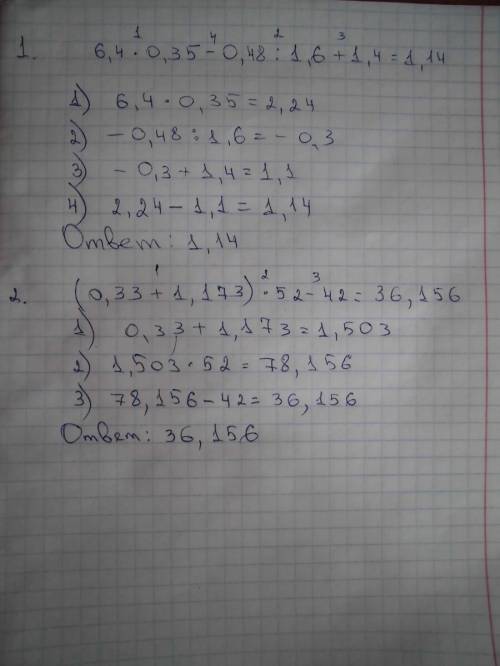 1 4 2 3
1. 6,4 · 0,35 - 0,48 : 1,6 + 1,4 = 1,14
1) 6,4 · 0,35 = 2,24
2) - 0,48 : 1,6 = - 0,3
3) - 0,3 + 1,4 = 1,1
4) 2,24 - 1,1 = 1,14
Ответ: 1,14
1 2 3
2. (0,33 + 1,173) · 52 - 42 = 36,156
1) 0,33 + 1,173 = 1,503
2) 1,503 · 52 = 78,156
3) 78,156 - 42 = 36,156
Ответ: 36,156